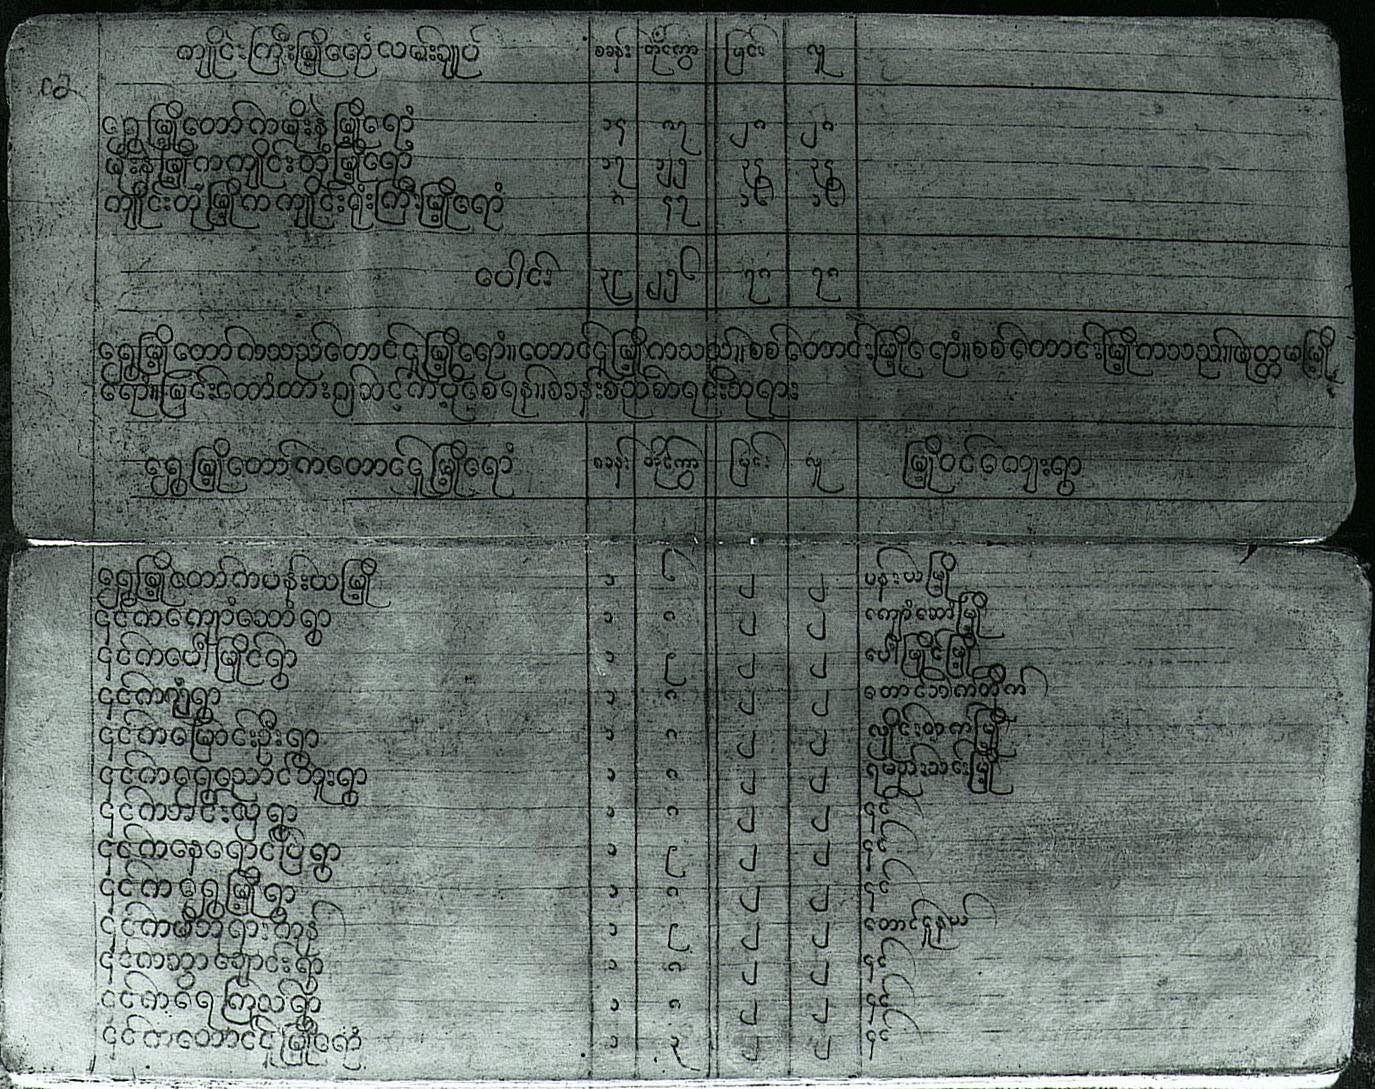 ကျိုင်းကြီးမြို့ရောံလမ်းချုပ် စခန်း တိုင်ကွာ မြင်း လူ
ရွှေမြို့တော်ကမိုးနဲမြို့ရောံ ၁၄ ၈၇ ၂၈ ၂၈
မိုးနဲမြို့ကကျိုင်းတုံမြို့ရောံ ၁၇ ၃၄ ၃၄
ကျိုင်းတုံမြို့ကကျိုင်းရုံးကြီးမြို့ရောံ ၈ ၄၇ ၁၆ ၁၆
ပေါင်း ၃၉ ၂၅၆ ၇၈ ၇၈
ရွှေမြို့တော်ကသည်တောင်ငူမြို့ရောံ။တောင်ငူမြို့ကသည်။စစ်တောင်းမြို့ရောံ။စစ်တောင်းမြို့ကသည်။မုတ္တမမြို့
ရောံ။မြင်းထောံထား၍ဆင့်ကပို့စေရန်။စခန်းစဉ်စာရင်းဘုရား
ရွှေမြို့တော်ကတောင်ငူမြို့ရောံ စခန်း တိုင်ကွာ မြင်း လူ မြို့ဝင်ကျေးရွာ
ရွှေမြို့တော်ကပန်းယမြို့ ၁ ၆ ၂ ၂ ပန်းယမြို့
၎င်းကကျောံဆောံရွာ ၁ ၈ ၂ ၂ ကျောံဆောံမြို့
၎င်းကပေါ်မြိုင်ရွာ ၁ ၉ ၂ ၂ ပေါ်မြိုင်မြို့
၎င်းကရွာ ၁ ၈ ၂ ၂ တောင်ဘက်တိုက်
၎င်းကမြောင်းဦးရွာ ၁ ၈ ၂ ၂ လှိုင်းတက်မြို့
၎င်းကရွှေညောင်ဘူးရွာ ၁ ၈ ၂ ၂ ရမည်းသင်းမြို့
၎င်းကအင်းလှရွာ ၁ ၈ ၂ ၂ ၎င်း
၎င်းကနေရောင်ပြရွာ ၁ ၉ ၂ ၂ ၎င်း
၎င်းကရွှေမြို့ရွာ ၁ ၈ ၂ ၂ ၎င်း
၎င်းကမိဘုရားကုန် ၁ ၉ ၂ ၂ တောင်ငူနယ်
၎င်းကသာချောင်းရွာ ၁ ၈ ၂ ၂ ၎င်း
၎င်းကရေကြည်ရွာ ၁ ၈ ၂ ၂ ၎င်း
၎င်းကတောင်ငူမြို့ရောံ ၁ ၃ ၂ ၂ ၎င်း